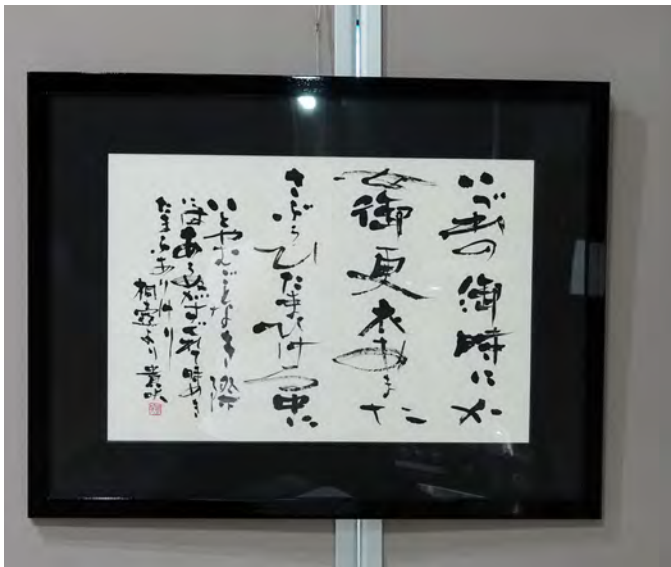 いづれの御時にか
女御更衣あまた
さぶらひたまひける中に
いとやむごとなき際
にはあらぬがすぐれて時めき
たまふありけり
桐壺より